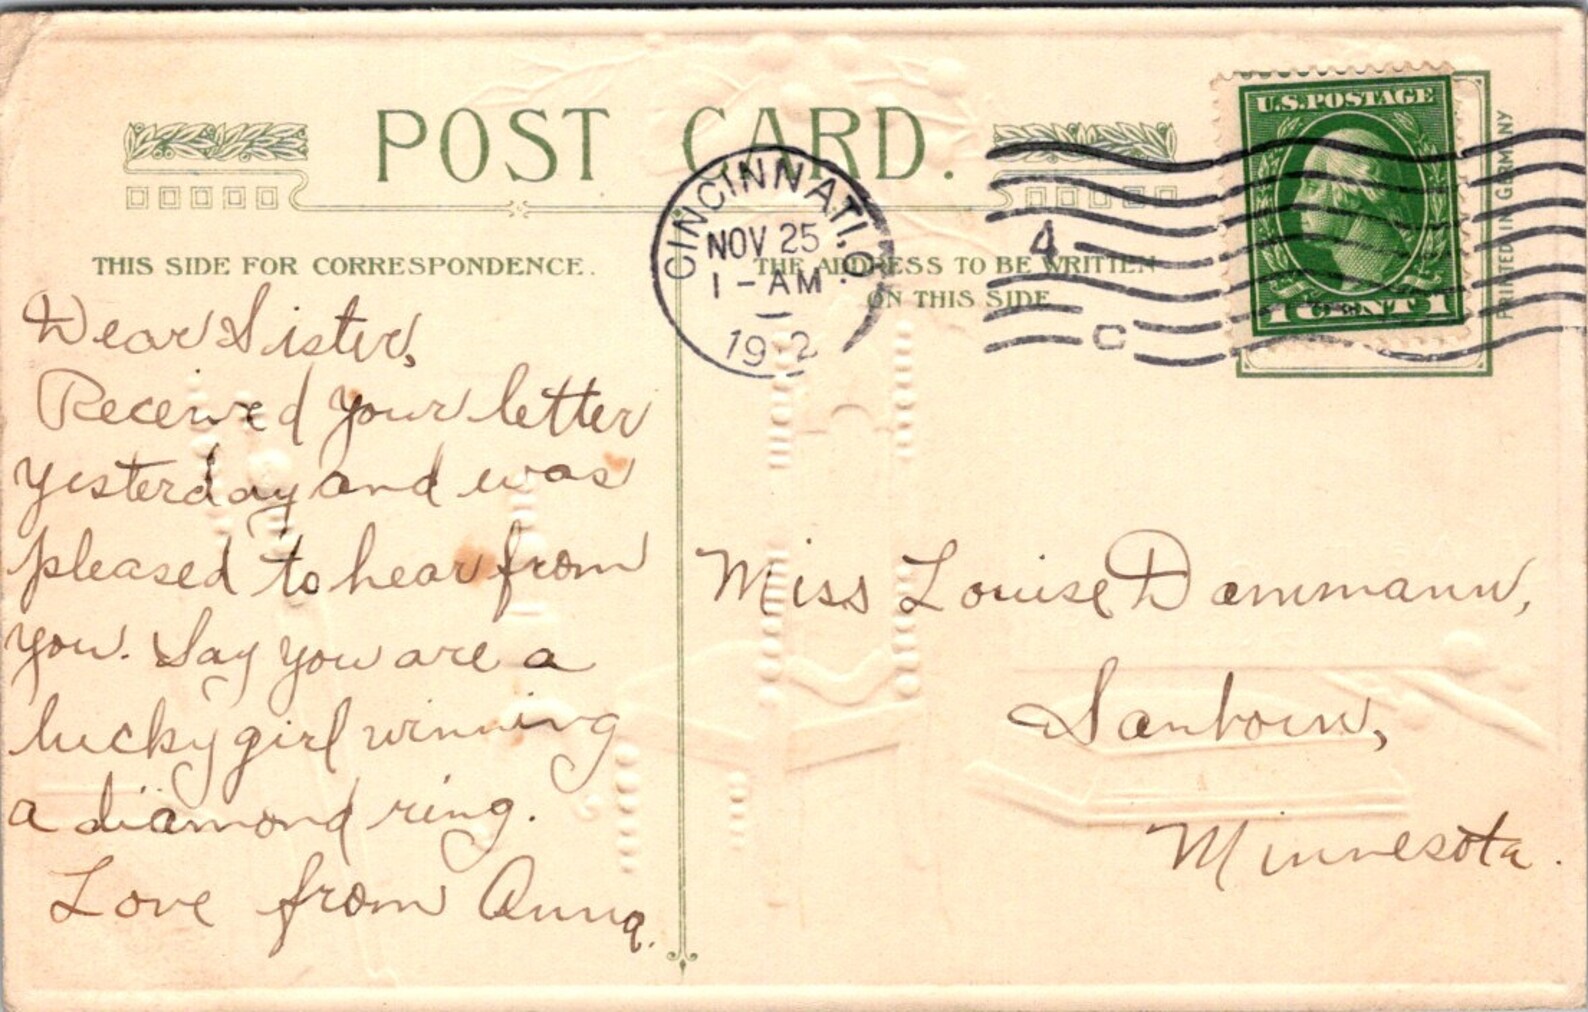 POST CARD.
THIS SIDE FOR CORRESPONDENCE.
THE ADDRESS TO BE WRITTEN
ON THIS SIDE
CINCINNATI, O.
NOV 25
1 - AM
1912
4
C
U.S.POSTAGE
1 CENT 1
PRINTED IN GERMANY
Dear Sister,
Received your letter
yesterday and was
pleased to hear from
you. Say you are a
lucky girl winning
a diamond ring.
Love from Anna.
Miss Louise Dammann,
Sanborn,
Minnesota.